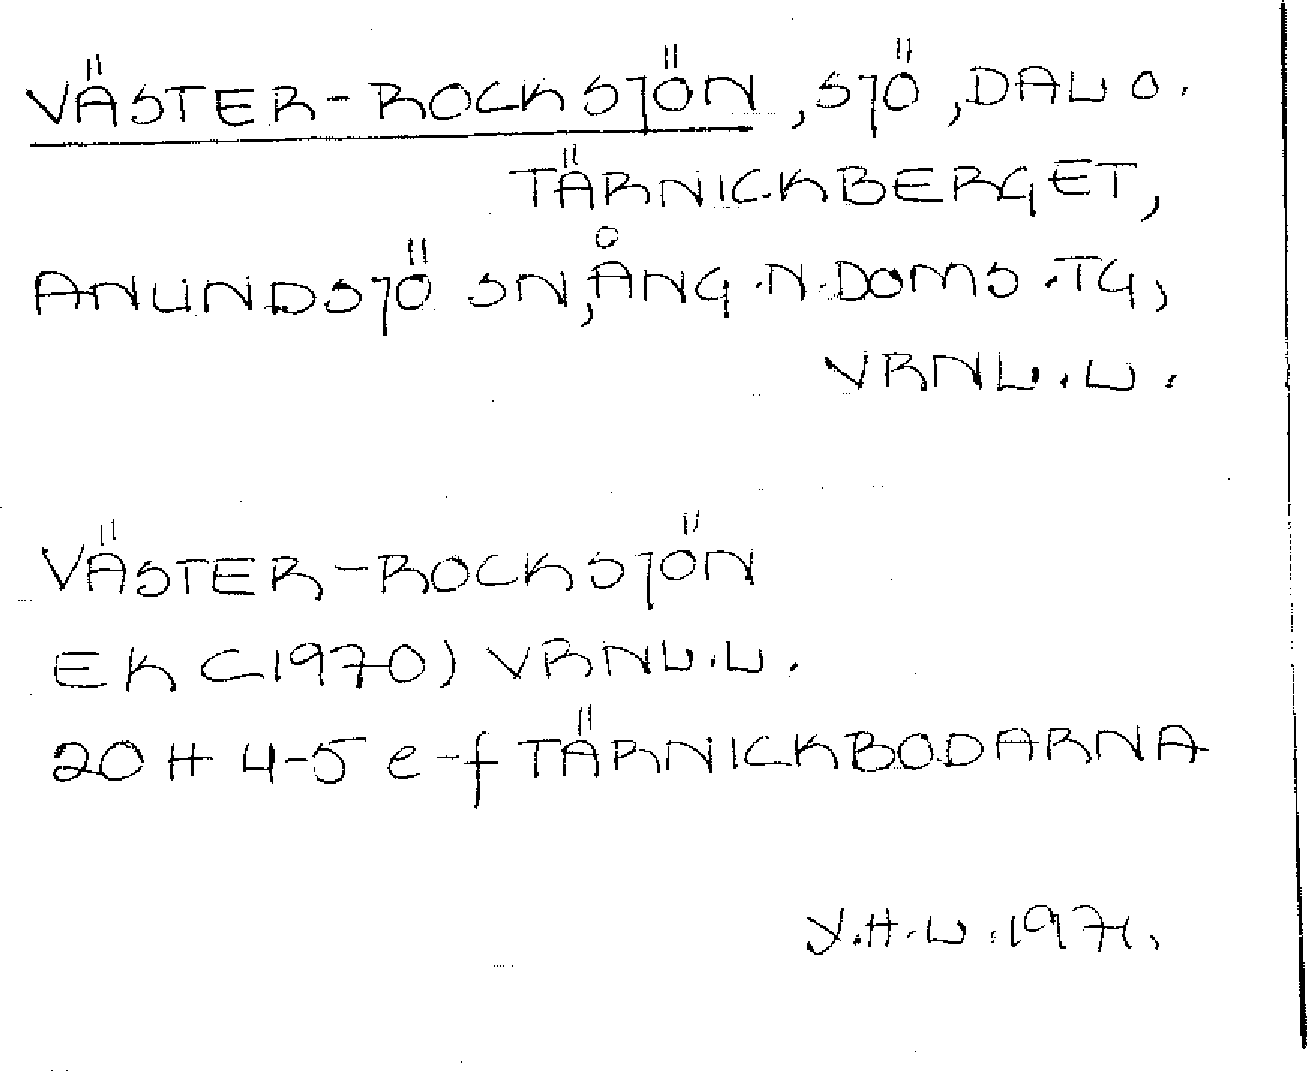 VÄSTER-ROCKSJÖN, SJÖ, DAL O.
TÄRNICKBERGET,
ANUNDSJÖ SN, ÅNG.N.DOMS.TG,
VRNL.L.
VÄSTER-ROCKSJÖN
EK (1970) VRNL.L.
20 H 4-5 e-f TÄRNICKBODARNA
Y.H.L. 1971.